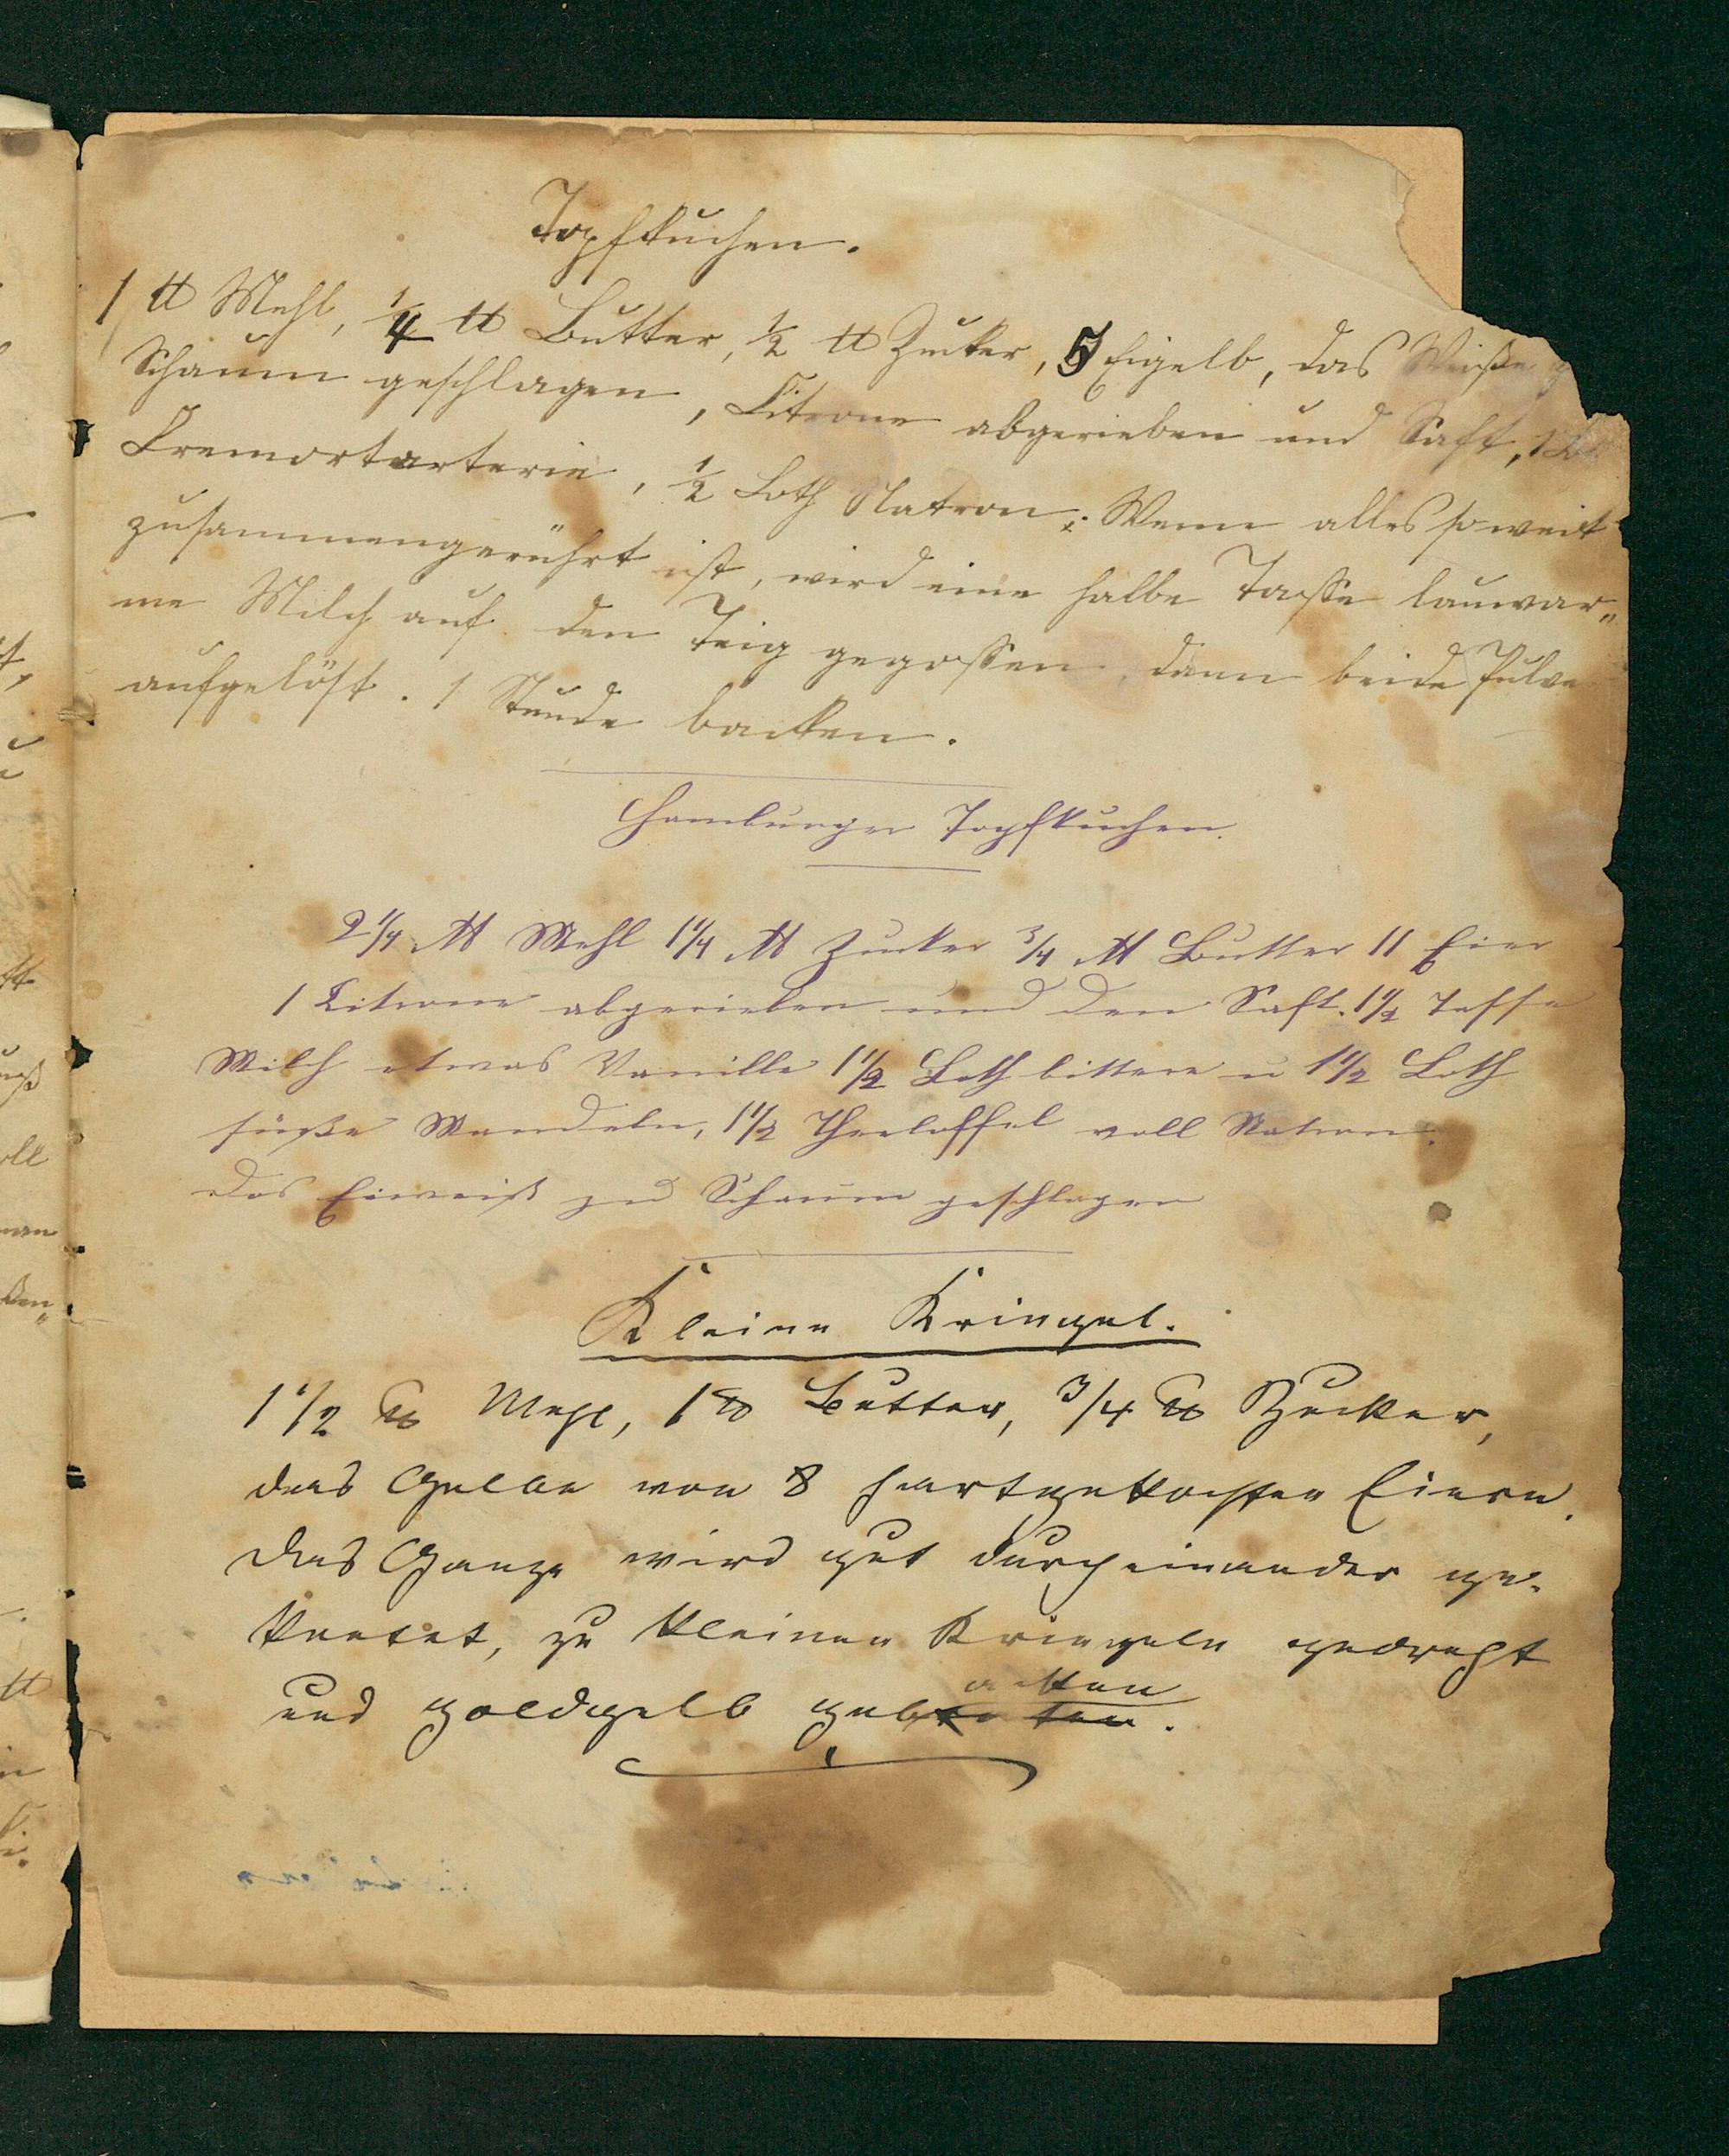 Topfkuchen.
1 ℔ Mehl, 1/4 ℔ Butter, 1/2 ℔ Zucker, 5 Eigelb, das Weiße
Schaum geschlagen, Citrone abgerieben und Saft, 1
Cremortarterie, 1/2 Loth Natron. Wenn alles soweit
zusammengerührt ist, wird eine halbe Tasse lauwar„
me Milch auf den Teig gegossen, dann beide Pulve
aufgelöst. 1 Stunde backen.
Hamburger Topfkuchen.
2 1/4 ℔ Mehl 1 1/4 ℔ Zucker 3/4 ℔ Butter 11 Eier
1 Citrone abgerieben und den Saft. 1 1/2 Tasse
Milch etwas Vanille 1 1/2 Loth bittere u 1 1/2 Loth
süße Mandeln, 1 1/2 Theeloffel voll Natron.
Das Eiweiß zu Schaum geschlagen
Kleine Kringel.
1 1/2 ℔ Mehl, 1 ℔ Butter, 3/4 ℔ Zucker,
das Gelbe von 8 hartgekochten Eiern.
Das Ganze wird gut durcheinander ge-
knetet, zu kleinen Kringeln gedreht
und goldgelb gebacken.